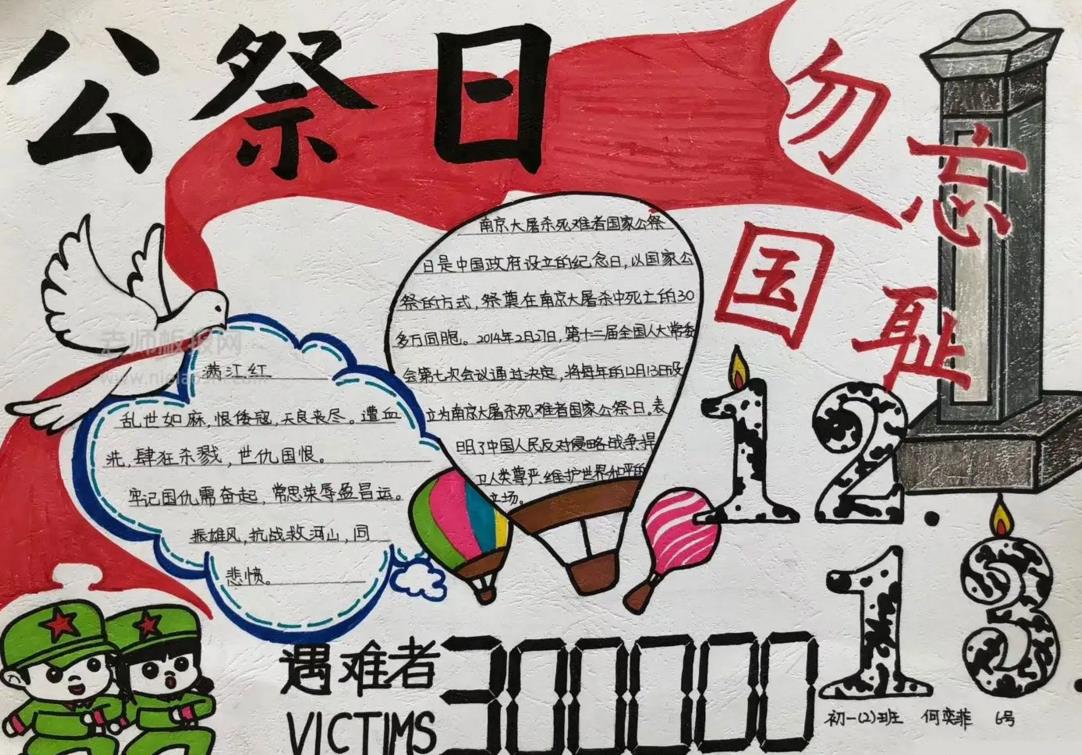 公祭日
勿忘
国耻
南京大屠杀死难者国家公祭
日是中国政府设立的纪念日,以国家公
祭的方式,祭奠在南京大屠杀中死亡的30
多万同胞。2014年2月27日,第十二届全国人大常委
会第七次会议通过决定,将每年的12月13日设
立为南京大屠杀死难者国家公祭日,表
明了中国人民反对侵略战争捍
卫人类尊严,维护世界和平的
立场。
满江红
乱世如麻,恨倭寇,天良丧尽。遭血
洗,肆狂杀戮,世仇国恨。
牢记国仇需奋起,常思荣辱盈昌运。
振雄风,抗战救河山,同
悲愤。
12.
13
遇难者 300000
VICTIMS
初一(2)班 何奕菲 6号
老师板报网